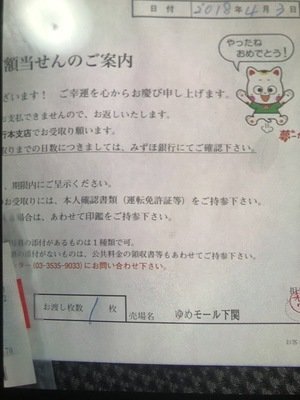 日付 2018年4月3日
やったね
おめでとう!
額当せんのご案内
ざいます! ご幸運を心からお慶び申し上げます。
お支払できませんので、お返しいたします。
行本支店でお受取り願います。
取りまでの日数につきましては、みずほ銀行にてご確認下さい。
期限内にご呈示ください。
のお受取りには、本人確認書類(運転免許証等)をご持参下さい。
場合は、あわせて印鑑をご持参下さい。
の添付があるものは1種類で可。
の添付がないものは、公共料金の領収書等もあわせてご持参下さい。
ター(03-3535-9033)にお問い合わせ下さい。
お渡し枚数 1枚 売場名 ゆめモール下関